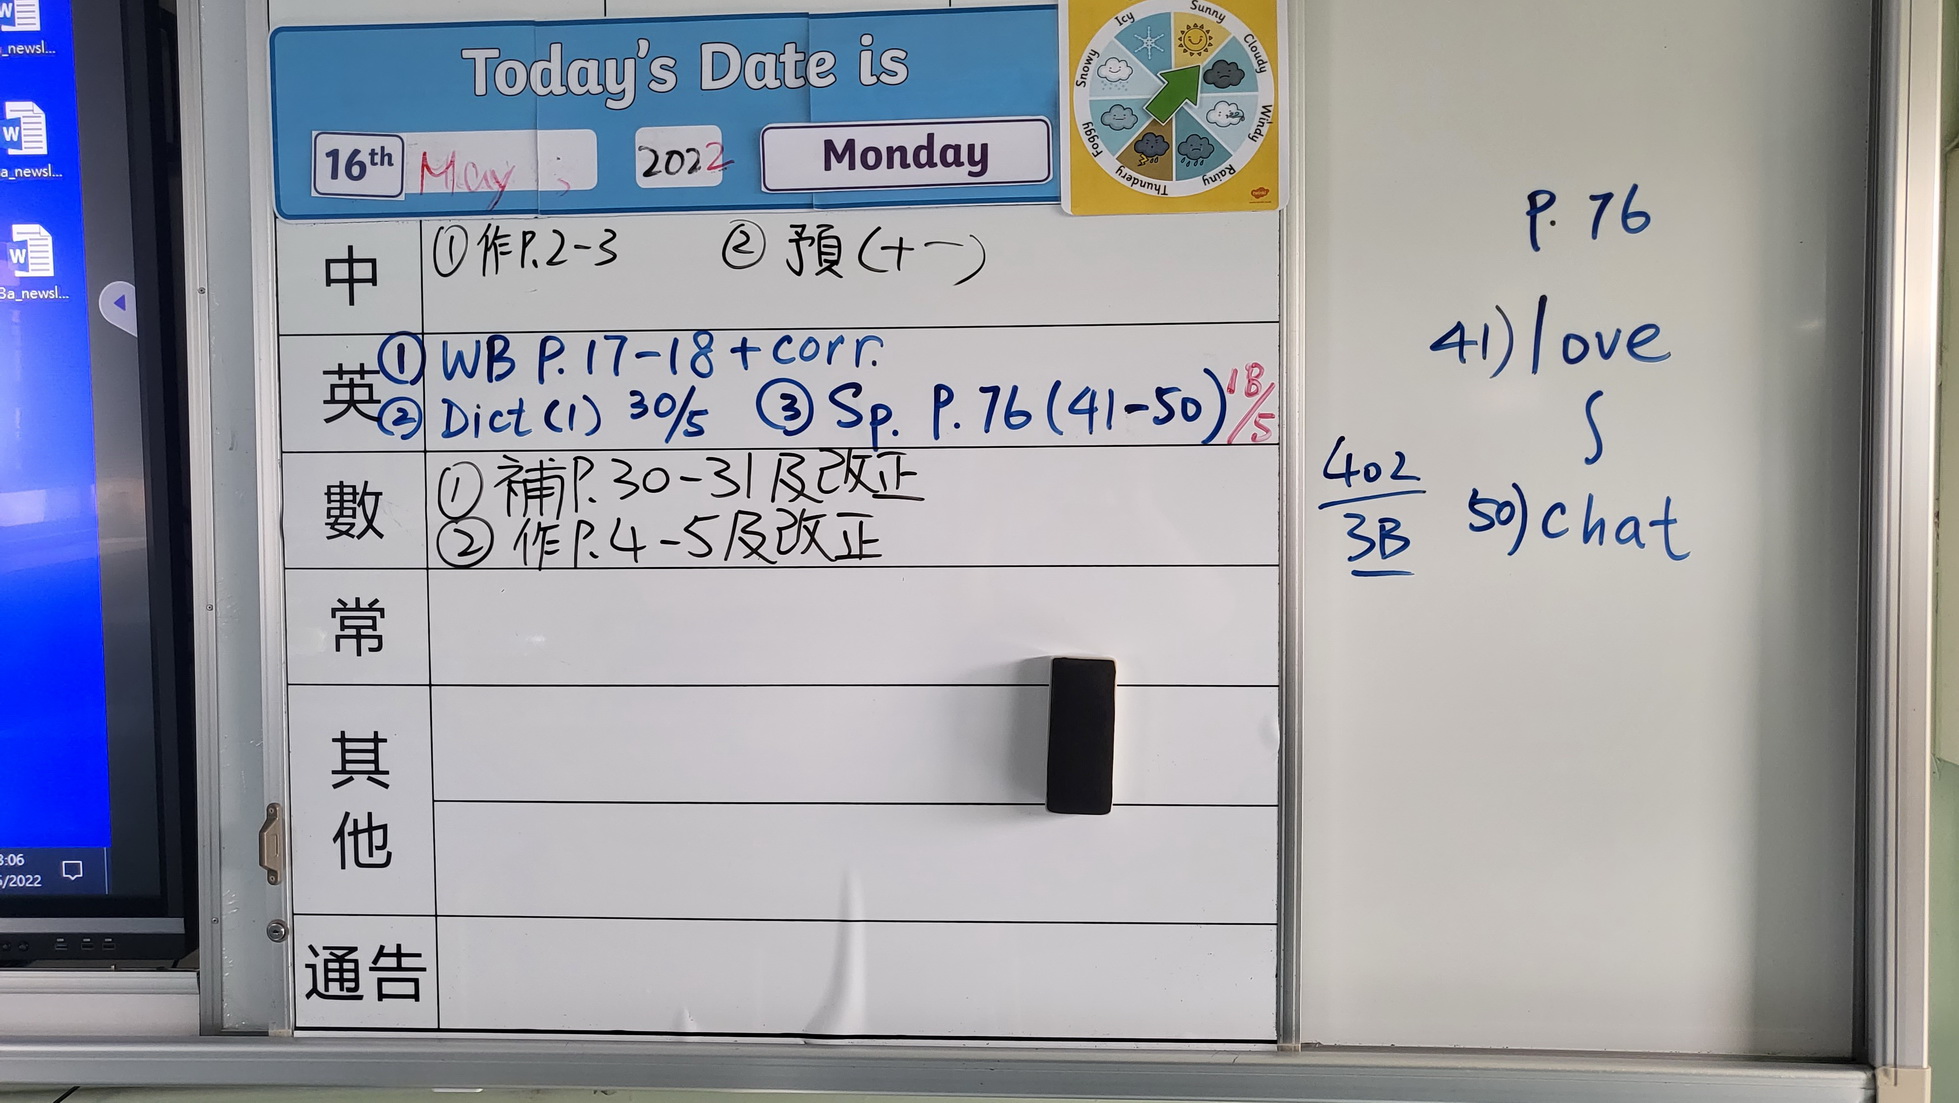 Today's Date is
16th May 2022 Monday
Icy Sunny Cloudy Windy Rainy Thundery Foggy Snowy
中 ①作P.2-3 ②預(十一)
英 ①WB P.17-18+corr.
②Dict(1) 30/5 ③Sp. P.76(41-50) 18/5
數 ①補P.30-31及改正
②作P.4-5及改正
常
其他
通告
P.76
41)love
∫
50)chat
402
3B
_newsl...
a_newsl...
3a_newsl...
3:06
/2022